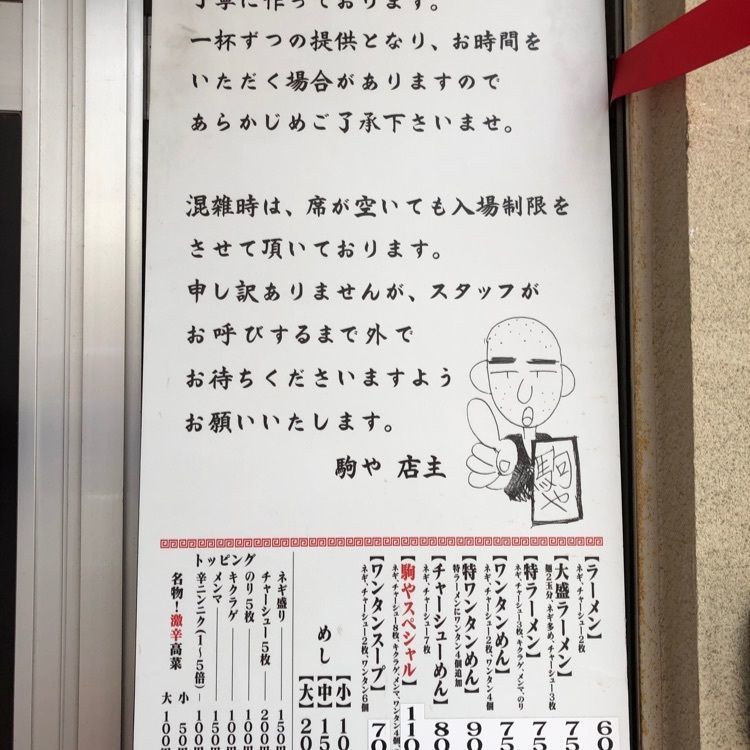 丁寧に作っております。
一杯ずつの提供となり、お時間を
いただく場合がありますので
あらかじめご了承下さいませ。
混雑時は、席が空いても入場制限を
させて頂いております。
申し訳ありませんが、スタッフが
お呼びするまで外で
お待ちくださいますよう
お願いいたします。
駒や 店主
駒や
【ラーメン】
ネギ、チャーシュー2枚
60
【大盛ラーメン】
麺2玉分、ネギ多め、チャーシュー3枚
75
【特ラーメン】
ネギ、チャーシュー3枚、キクラゲ、メンマ、のり
75
【ワンタンめん】
ネギ、チャーシュー2枚、ワンタン4個
75
【特ワンタンめん】
特ラーメンにワンタン4個追加
90
【チャーシューめん】
ネギ、チャーシュー7枚
80
【駒やスペシャル】
ネギ、チャーシュー8枚、キクラゲ、メンマ、ワンタン4個
110
【ワンタンスープ】
ネギ、チャーシュー2枚、ワンタン6個
70
めし
【小】10
【中】15
【大】20
トッピング
ネギ盛り 150円
チャーシュー5枚 200円
のり5枚 100円
キクラゲ 100円
メンマ 150円
辛ニンニク(1～5倍) 100円
名物!激辛高菜
小 50円
大 100円